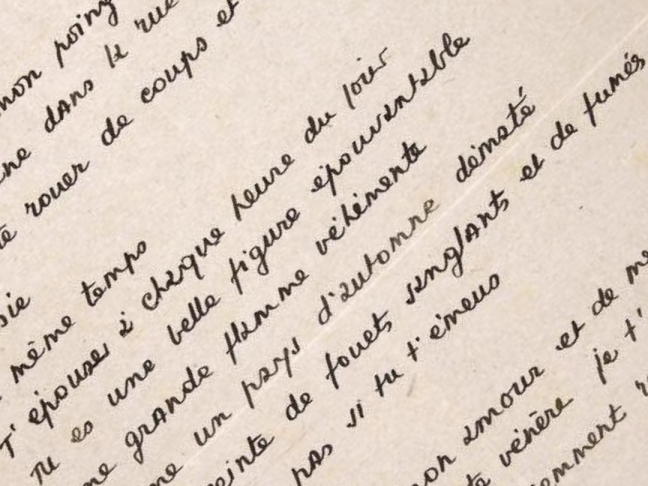 mon poing
dans la rue
rouer de coups et
même temps
T'épouser à chaque heure du jour
Tu es une belle figure épouvantable
grande flamme véhémente
un pays d'automne démâté
de fouets sanglants et de fumés
pas si tu t'émeus
amour et de
vénère je t'